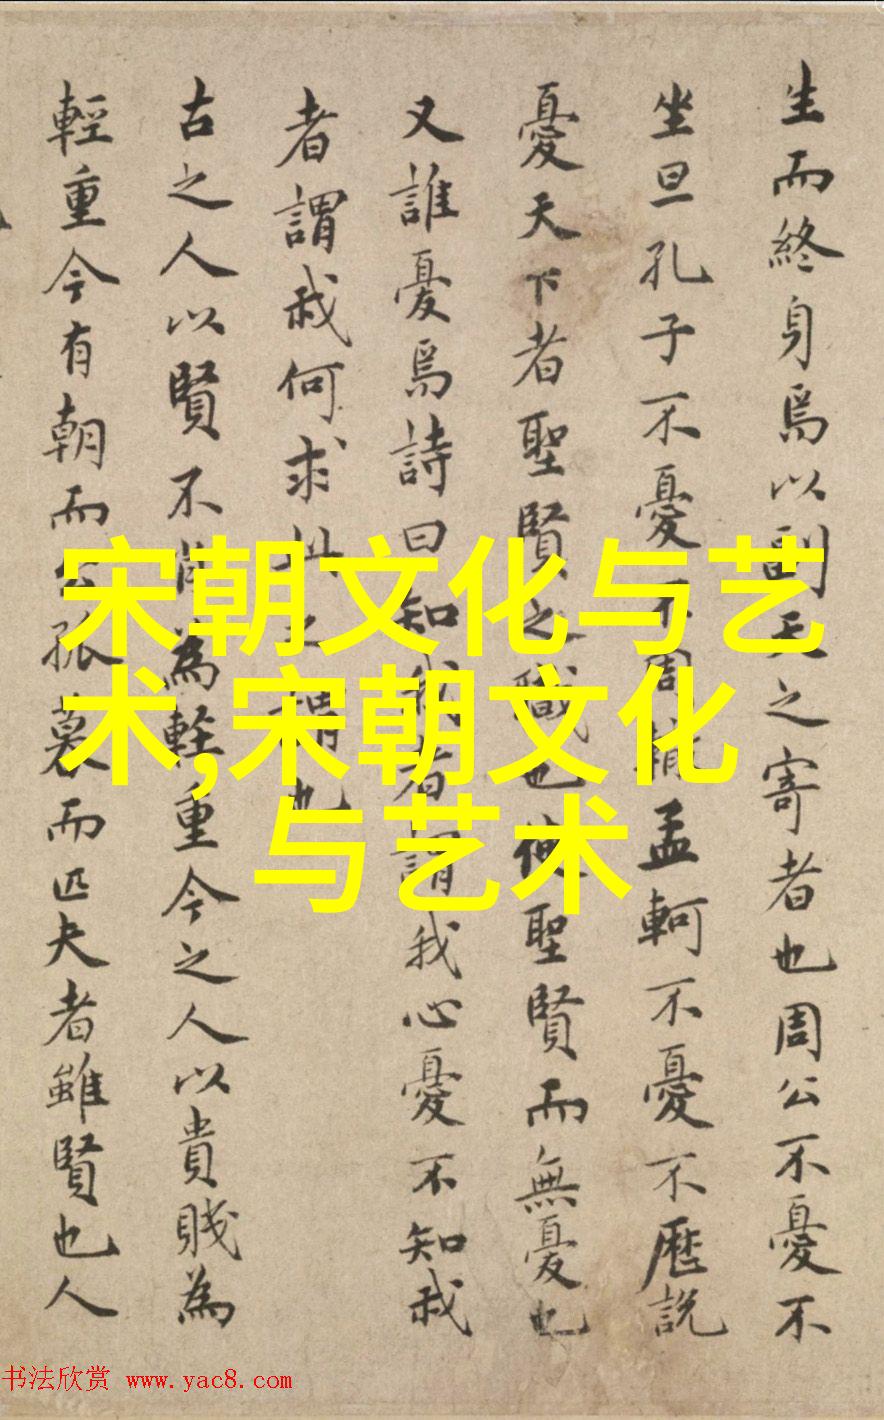 生而終身焉以副天之寄者也周公不憂不
坐旦孔子不憂不周孟軻不憂不歷說
憂天下者聖賢之職也使聖賢而無憂也
又誰憂焉詩曰知我者謂我心憂不知我
者謂我何求此之謂也
古之人以賢不肖為輕重今之人以貴賤為
輕重今有朝而公孤暮而匹夫者雖賢也人
宋朝文化与艺
术,宋朝文化
与艺术
书法欣赏 www.yac8.com